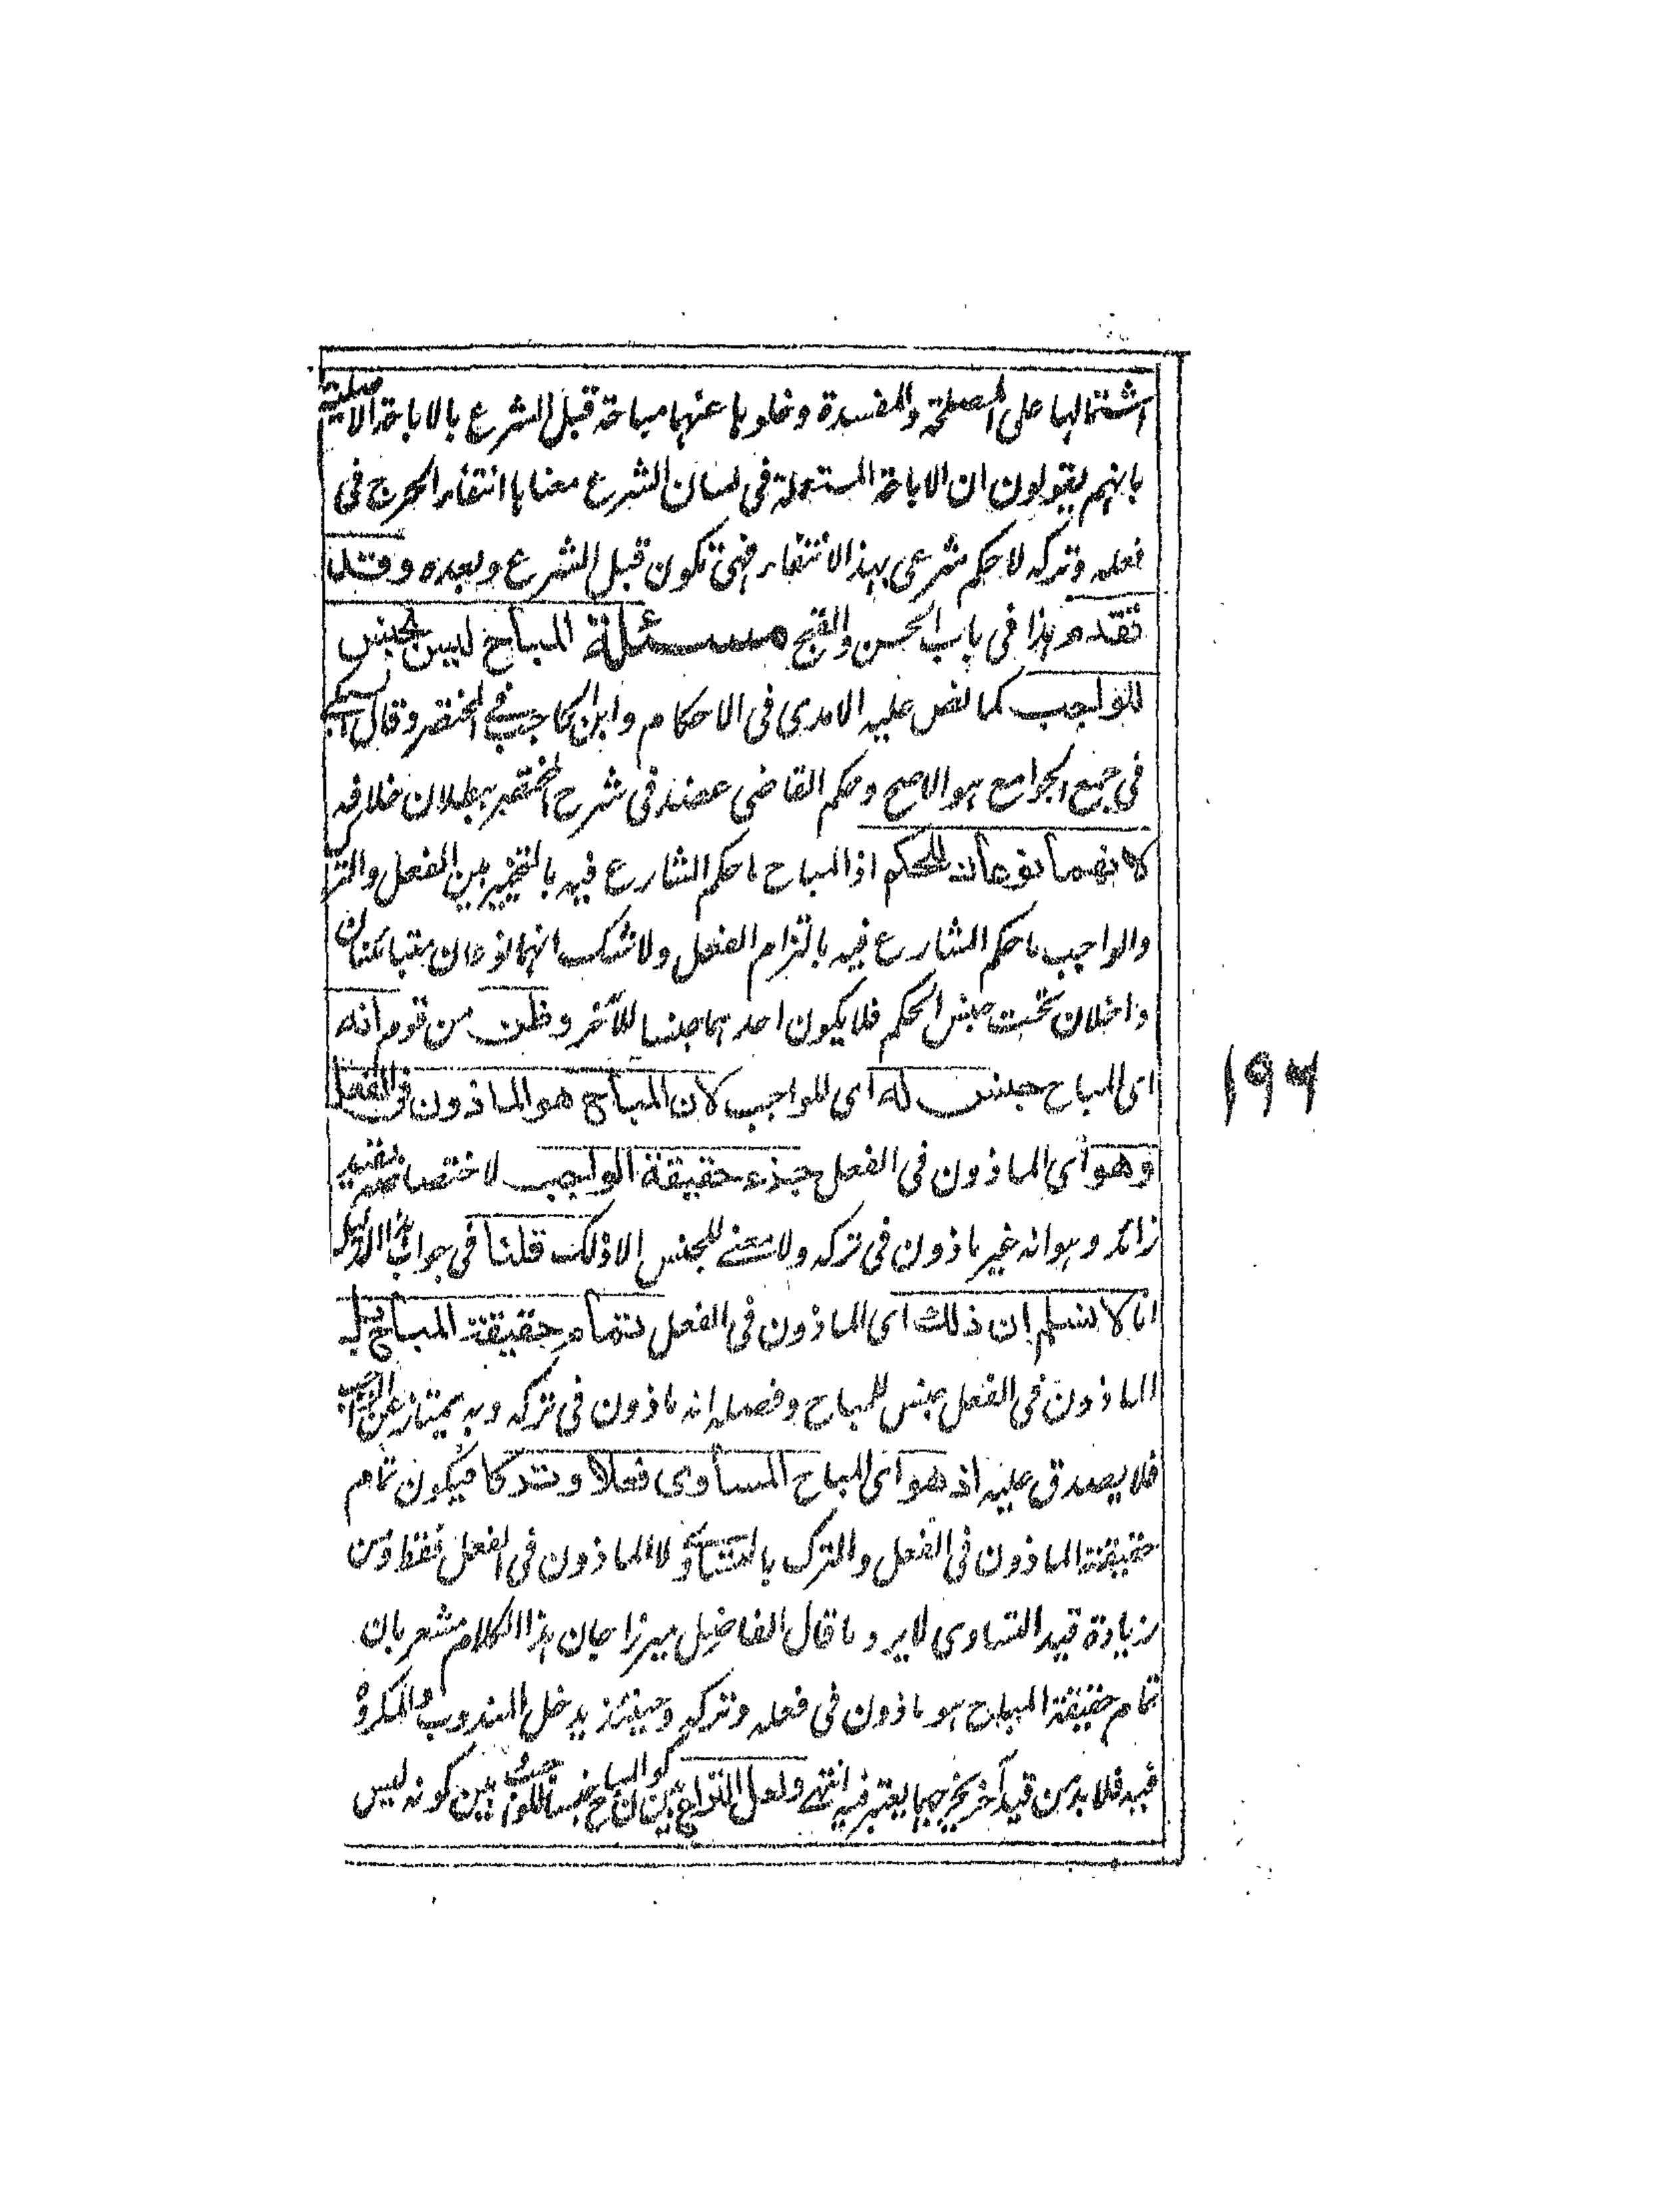 اشتمالها على المصلحة والمفسدة وخلوها عنهما مباحة قبل الشرع بالاباحة الاصلية
بانهم يقولون ان الاباحة المستعملة فى لسان الشرع معناها انتفاء الحرج فى
فعله وتركه لا حكم شرعى بهذا الانتفاء فهى تكون قبل الشرع وبعده وقد
تقدم هذا فى باب الحسن والقبح مسئلة المباح ليس بجنس
للواجب كما نص عليه الامدى فى الاحكام وابن الحاجب فى المختصر وقال السبكى
فى جمع الجوامع هو الاصح وحكم القاضى عضد فى شرح المختصر ببطلان خلافه
لانهما نوعان للحكم اذ المباح ما حكم الشارع فيه بالتخيير بين الفعل والترك
والواجب ما حكم الشارع فيه بالتزام الفعل ولا شك انهما نوعان متبائنان
داخلان تحت جنس الحكم فلا يكون احدهما جنسا للآخر وظن من قوم انه
اى المباح جنس له اى للواجب لان المباح هو الماذون فى الفعل
وهو اى الماذون فى الفعل جزء حقيقة الواجب لاختصاصه بقيد
زائد وهو انه غير ماذون فى تركه ولا معنى للجنس الا ذلك قلنا فى جواب هذا الدليل
انا لا نسلم ان ذلك اى الماذون فى الفعل تمام حقيقة المباح بل
الماذون فى الفعل جنس للمباح وفصله انه ماذون فى تركه وبه يمتاز عن الواجب
فلا يصدق عليه اذ هو اى المباح المساوى فعلا وتركا فيكون تمام
حقيقته الماذون فى الفعل والترك بالتساوى لا الماذون فى الفعل فقط ومن
زيادة قيد التساوى لا يرد ما قال الفاضل ميرزا جان هذا الكلام مشعر بان
تمام حقيقة المباح هو ماذون فى فعله وتركه وحينئذ يدخل المندوب والمكروه
فيه فلا بد من قيد آخر يخرجهما يعتبر فيه انتهى ولعل النزاع بين كون المباح جنسا للواجب وبين كونه ليس
١٩٦